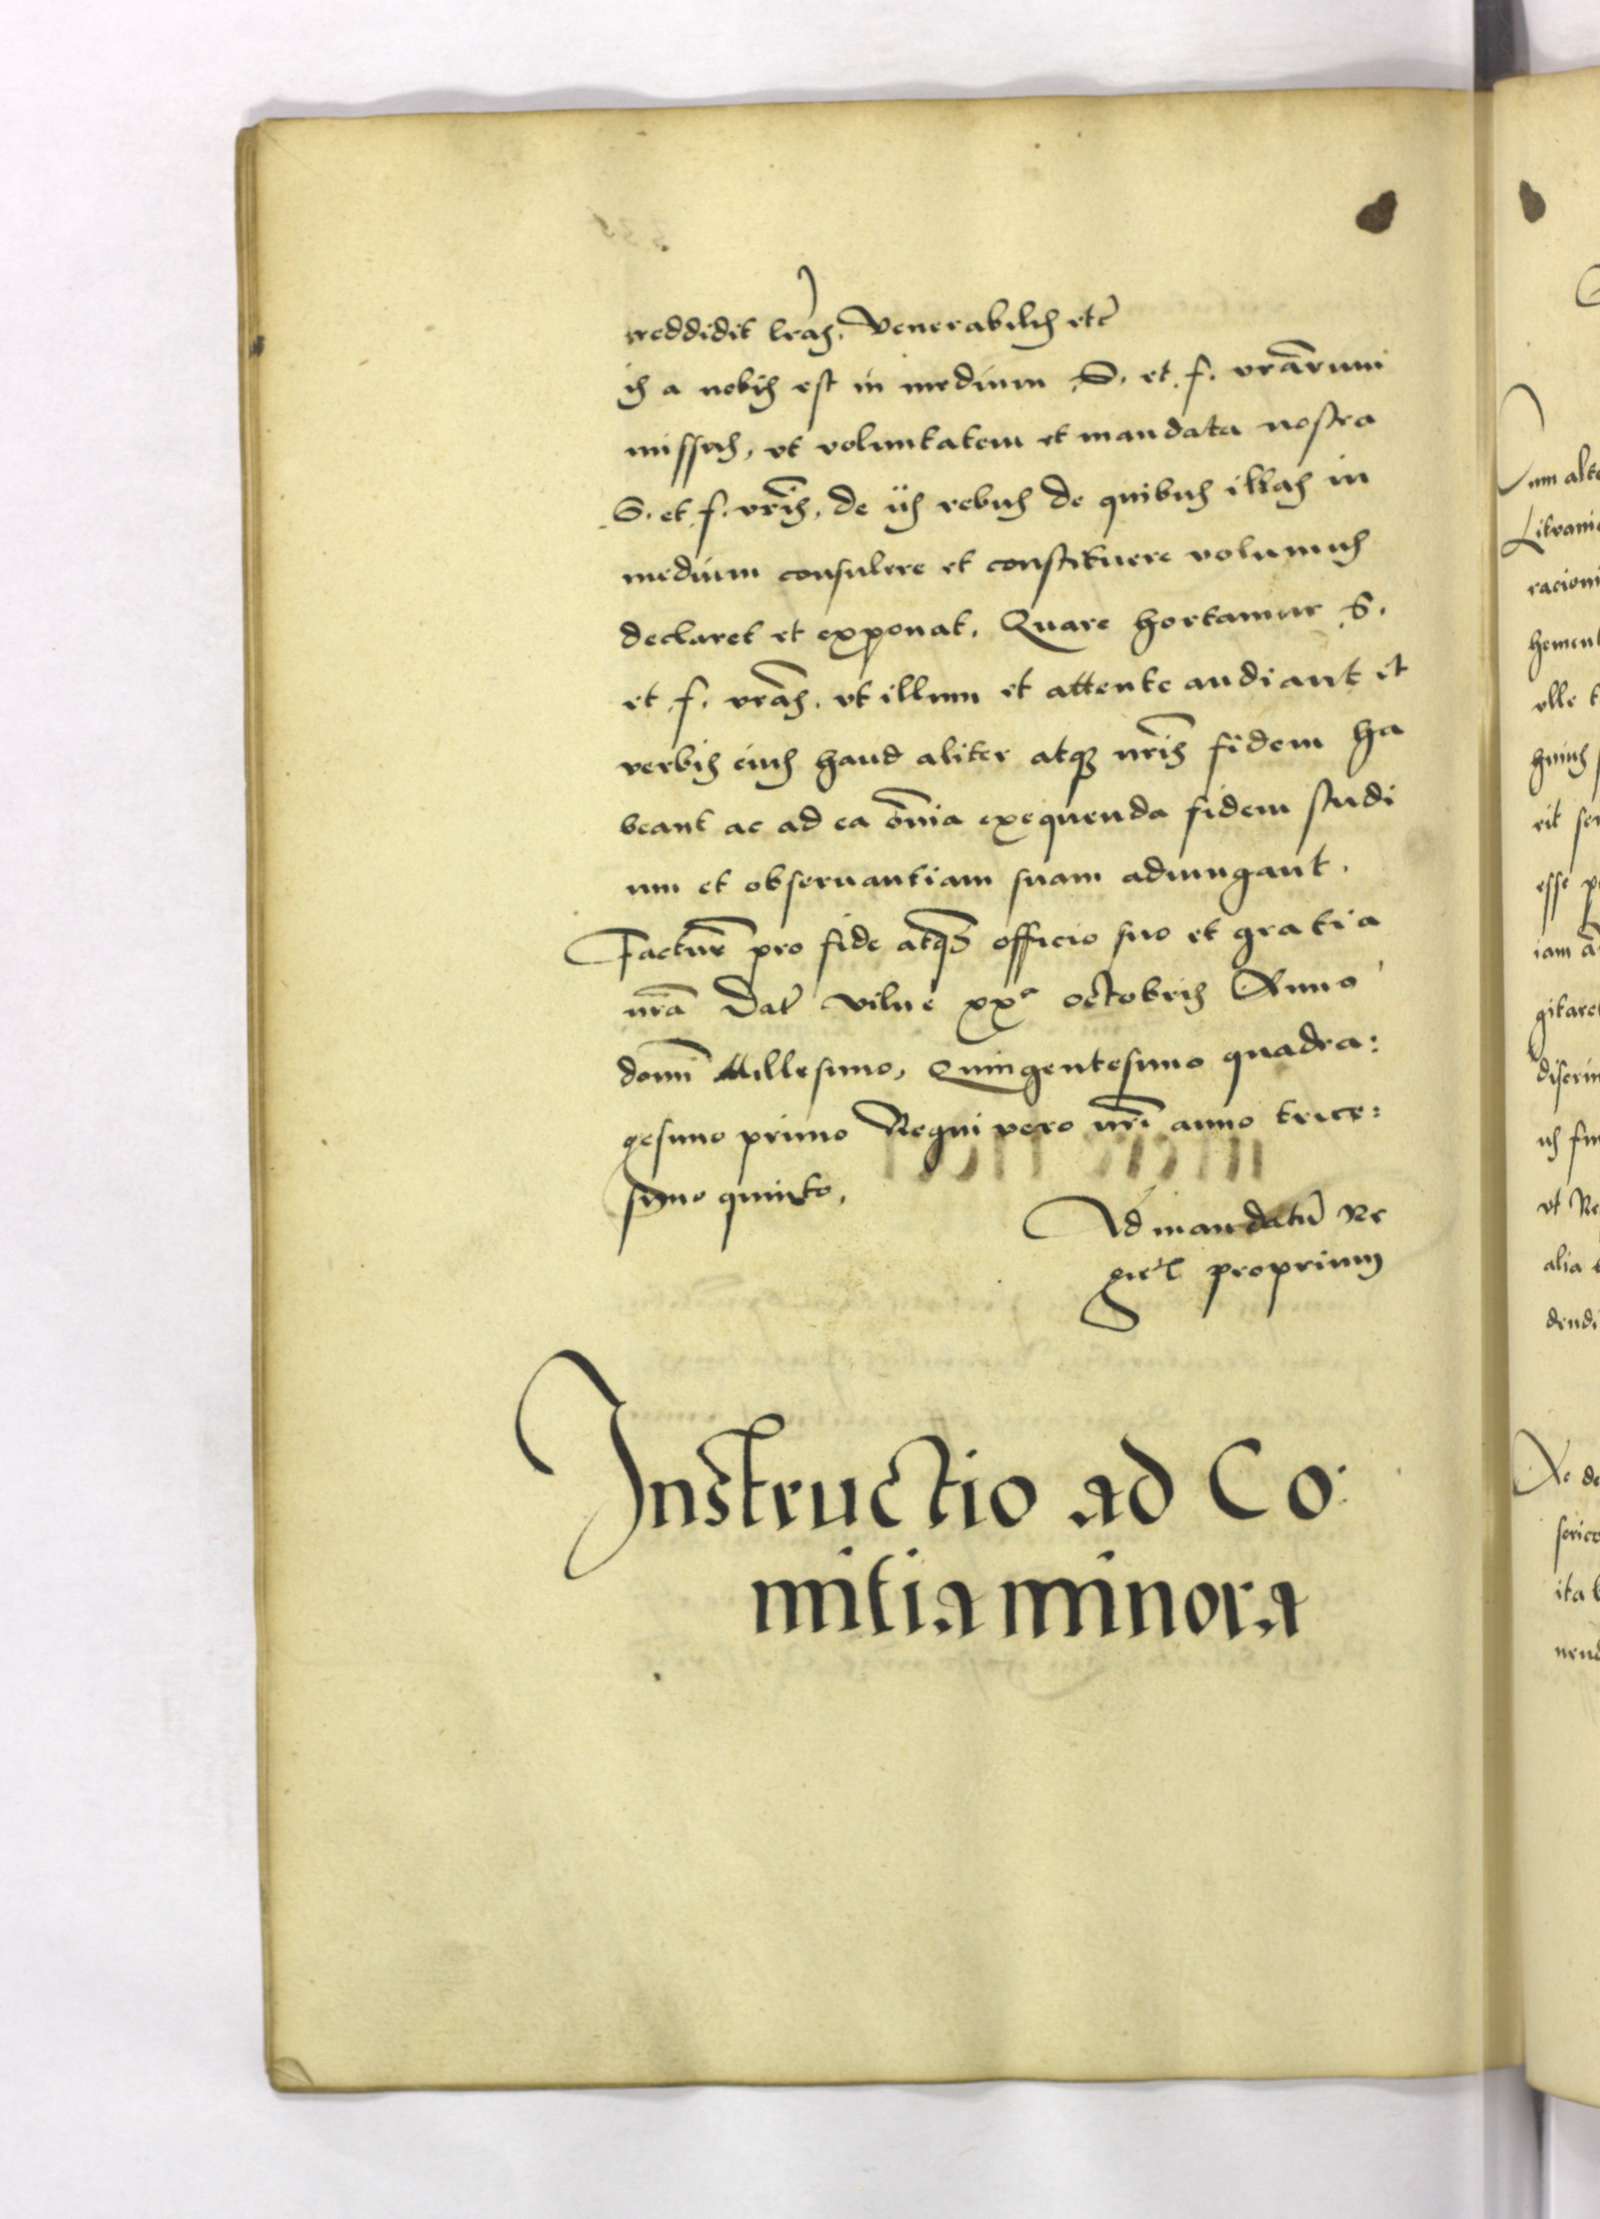 reddidit lr̃as, Venerabilis etc̃
is a nobis est in medium S. et f. vrãrum
missus, vt voluntatem et mandata nostra
S. et f. vrĩs, de iis rebus de quibus illas in
medium consulere et constituere volumus
declaret et exponat. Quare hortamur S.
et f. vrãs. vt illum et attente audiant et
verbis eius haud aliter atqȝ nrĩs fidem ha
beant ac ad ea om̃ia exequenda fidem studi
um et obseruantiam suam adiungant.
Factur̃ pro fide atqȝ officio suo et gratia
nrã Dat̃ Vilne xxᵃ octobris Anno
domĩ Millesimo, Quingentesimo quadra:
gesimo primo Regni vero nrĩ anno trice:
simo quinto,
Ad mandatũ Re
gie M proprium
Instructio ad Co:
mitia minora
um alte
Litvani
racioni
hement
vlle t
huius
rit se
esse p
iam ã
gitaret
discrim
us fin
vt Re
alia
dendi
Ac de
seric
ita
nend